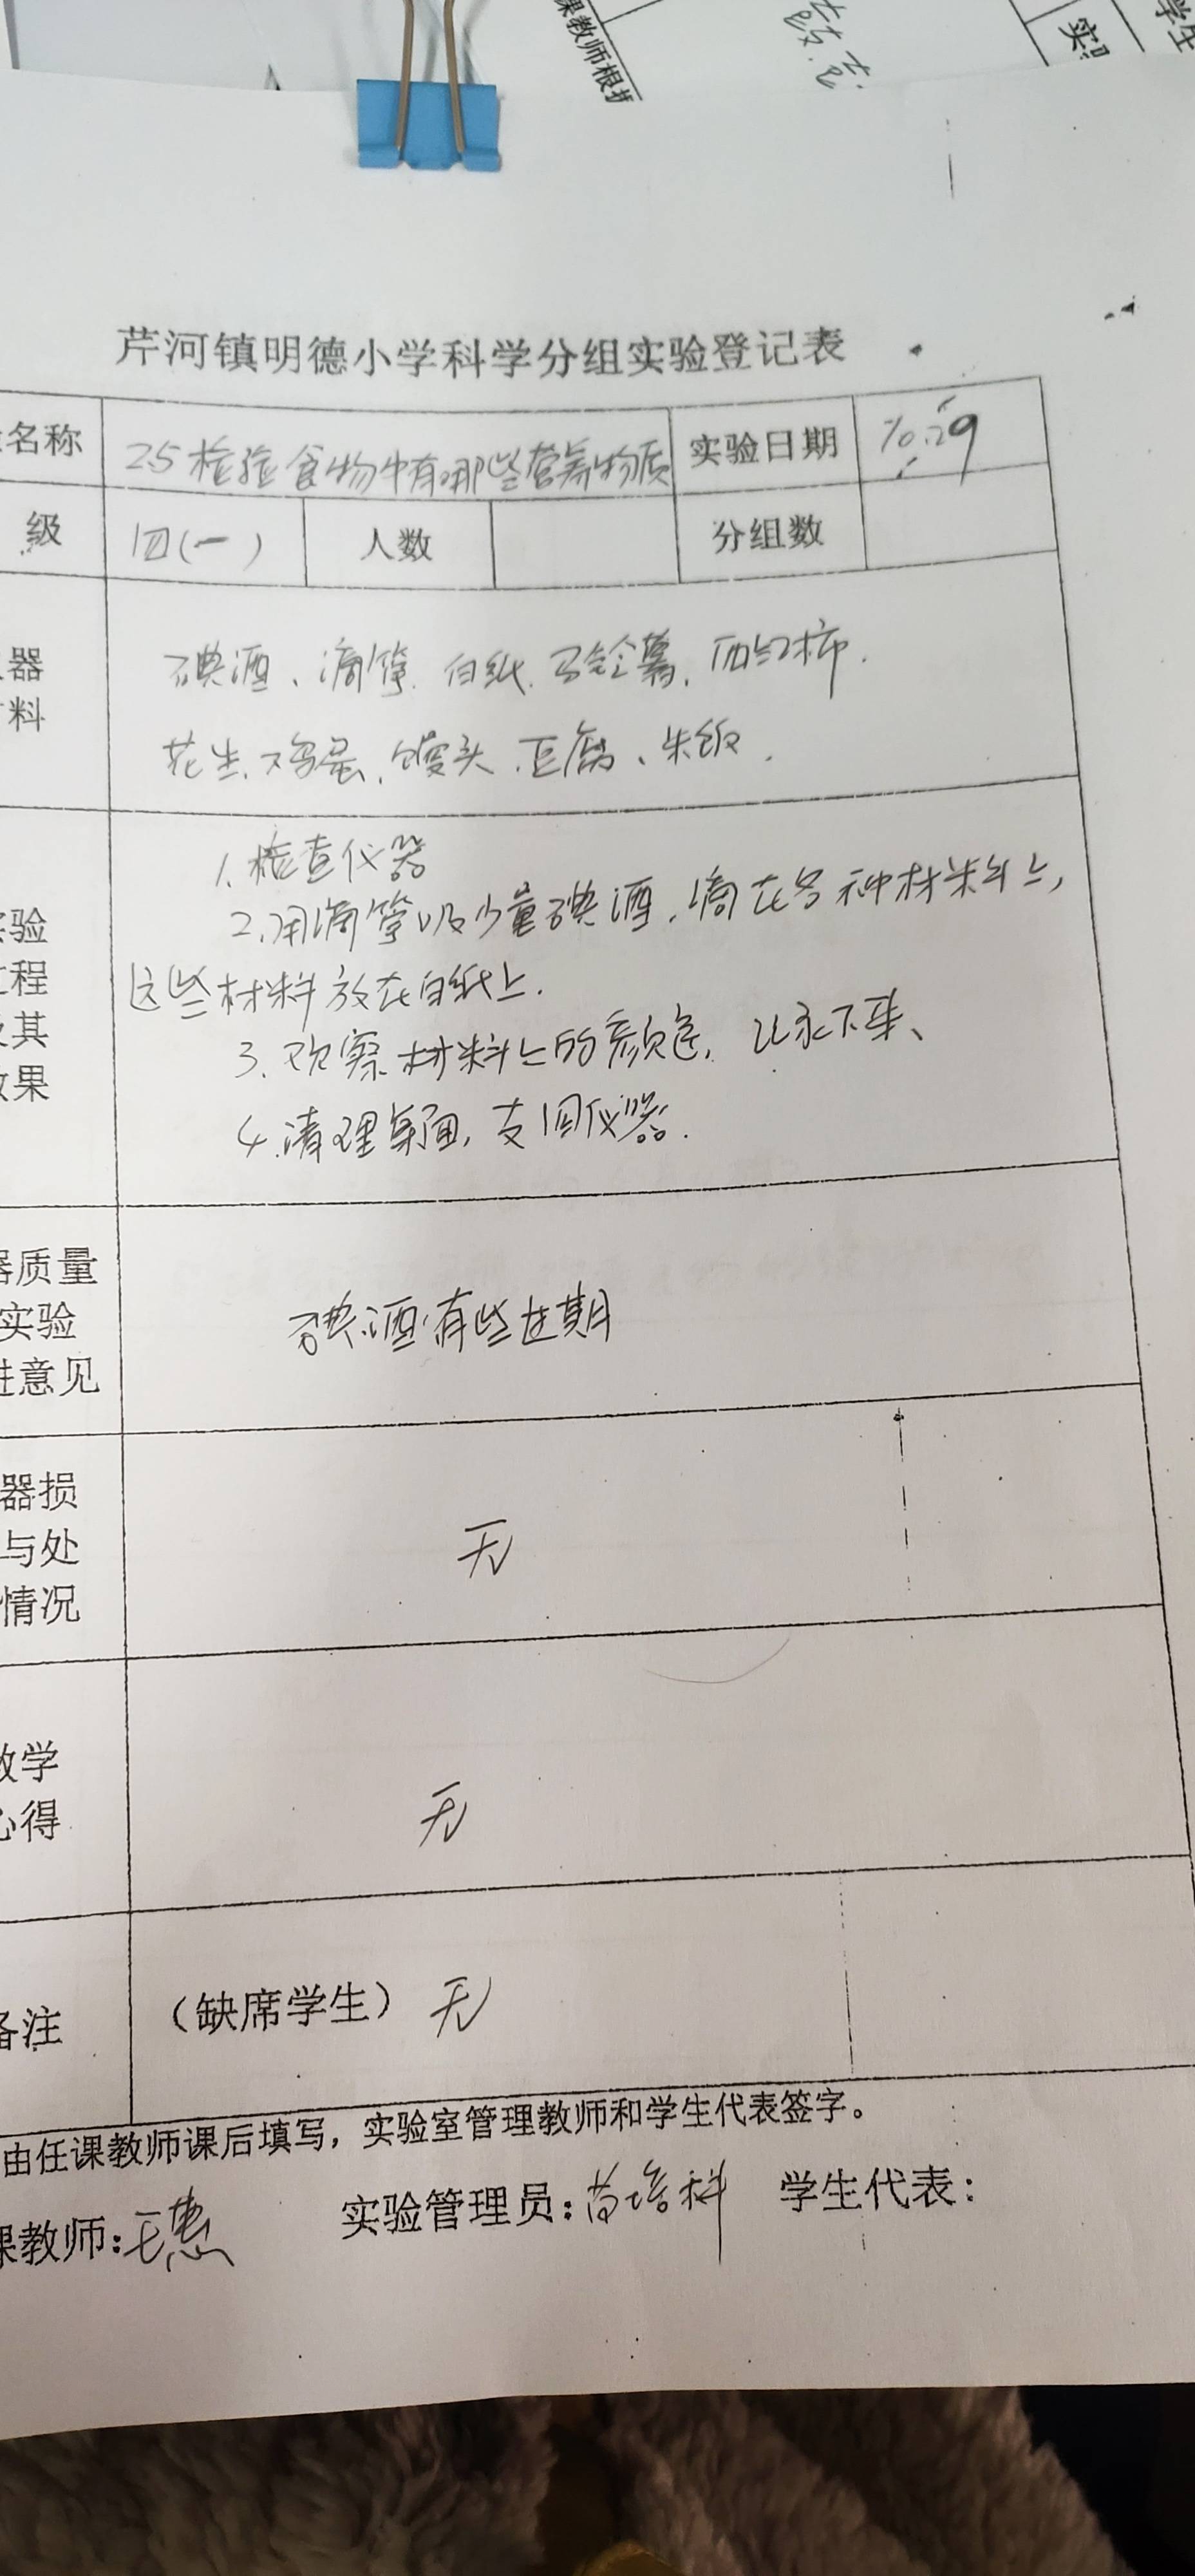 课教师根据
实
学生
芹河镇明德小学科学分组实验登记表
名称 25 检验食物中有哪些营养物质 实验日期 10.29
级 四(一) 人数 分组数
器 碘酒、滴管、白纸、马铃薯、西红柿、
料 花生、鸡蛋、馒头、豆腐、米饭.
1.检查仪器
验 2.用滴管吸少量碘酒,滴在各种材料上,
程 这些材料放在白纸上.
其 3.观察材料上的颜色,记录下来、
果 4.清理桌面,支回仪器.
质量
实验 碘酒有些过期
进意见
器损
与处 无
情况
教学
心得 无
备注 (缺席学生) 无
由任课教师课后填写,实验室管理教师和学生代表签字。
课教师:王惠 实验管理员:苗培科 学生代表: